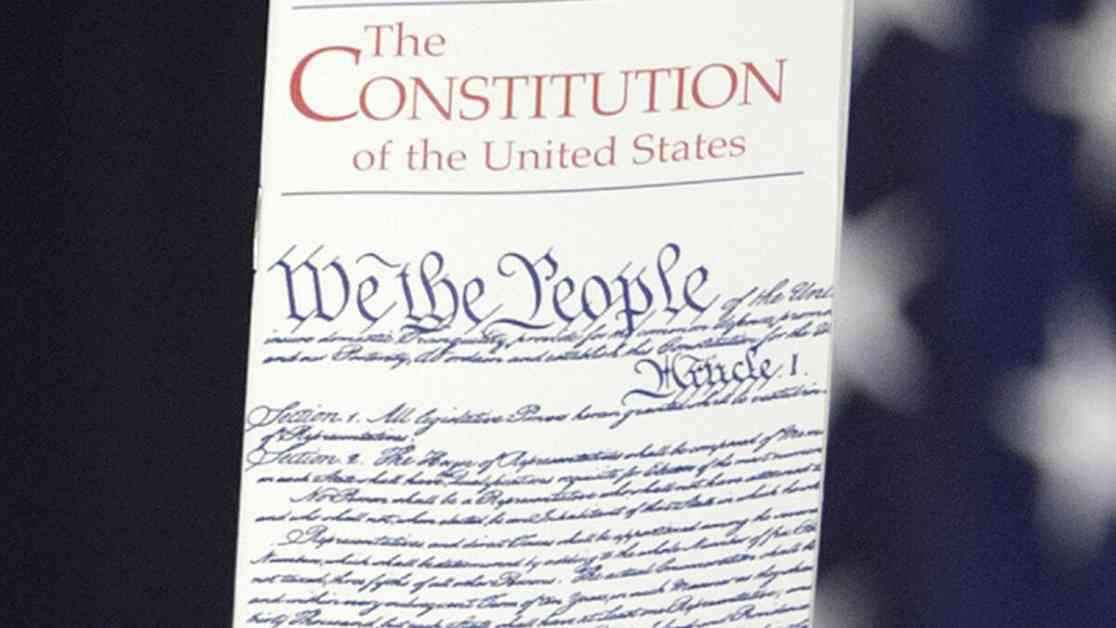 The
CONSTITUTION
of the United States
We the People of the Unit
insure domestic Tranquility, provide for the common defence, promo
and our Posterity, do ordain and establish this Constitution for the U
Article. I.
Section. 1. All legislative Powers herein granted shall be vested in
of Representatives.
Section. 2. The House of Representatives shall be composed of Mem
in each State shall have Qualifications requisite for Electors of the most numerous
No Person shall be a Representative who shall not have attained to
and who shall not, when elected, be an Inhabitant of that State in which he shall
Representatives and direct Taxes shall be apportioned among the several
Numbers, which shall be determined by adding to the whole Number of free Per
not taxed, three fifths of all other Persons. The actual Enumeration shall be
and within every subsequent Term of ten Years, in such Manner as they shall
thirty Thousand, but each State shall have at Least one Representative; and